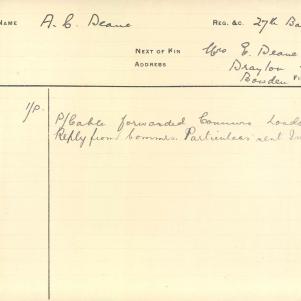 NAME A. C. Deane REG. &C. 27th Ba
NEXT OF KIN Mrs E. Deane
ADDRESS Drayton
Bowden
1/P. P/Cable forwarded Commrs Lond
Reply from Commrs. Particulars sent